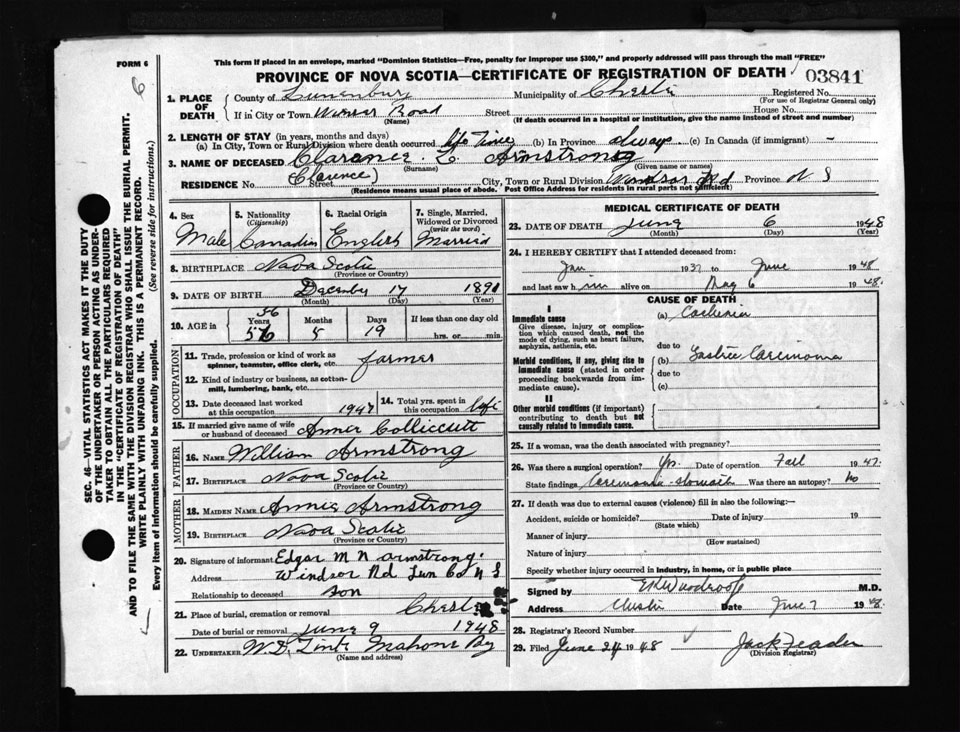 FORM 6
6
This form if placed in an envelope, marked "Dominion Statistics—Free, penalty for improper use $300," and properly addressed will pass through the mail "FREE"
PROVINCE OF NOVA SCOTIA—CERTIFICATE OF REGISTRATION OF DEATH 03841
1. PLACE OF DEATH County of Lunenburg Municipality of Chester Registered No.
(For use of Registrar General only)
If in City or Town Winsor Road Street House No.
(Name) (If death occurred in a hospital or institution, give the name instead of street and number)
2. LENGTH OF STAY (in years, months and days)
(a) In City, Town or Rural Division where death occurred life Time (b) In Province always (c) In Canada (if immigrant) -
3. NAME OF DECEASED Clarance. L. Armstrong
(Surname) (Given name or names)
(Clarence)
RESIDENCE No. Street City, Town or Rural Division Windsor Rd Province N S
(Residence means usual place of abode. Post Office Address for residents in rural parts not sufficient)
4. Sex 5. Nationality (Citizenship) 6. Racial Origin 7. Single, Married, Widowed or Divorced (write the word)
Male Canadian English Married
8. BIRTHPLACE Nova Scotia
(Province or Country)
9. DATE OF BIRTH December 17 1891
(Month) (Day) (Year)
10. AGE in Years Months Days If less than one day old
56
56 5 19 hrs. or min.
OCCUPATION
11. Trade, profession or kind of work as spinner, teamster, office clerk, etc. farmer
12. Kind of industry or business, as cotton-mill, lumbering, bank, etc.
13. Date deceased last worked at this occupation 1947 14. Total yrs. spent in this occupation life
15. If married give name of wife or husband of deceased Annie Collicutt
FATHER
16. NAME William Armstrong
17. BIRTHPLACE Nova Scotia
(Province or Country)
MOTHER
18. MAIDEN NAME Annie Armstrong
19. BIRTHPLACE Nova Scotia
(Province or Country)
20. Signature of informant Edgar M N armstrong.
Address Windsor Rd Lun Co N S
Relationship to deceased son
21. Place of burial, cremation or removal Chester
Date of burial or removal June 9 1948
22. UNDERTAKER Mahone Bay
(Name and address)
MEDICAL CERTIFICATE OF DEATH
23. DATE OF DEATH June 6 1948
(Month) (Day) (Year)
24. I HEREBY CERTIFY that I attended deceased from:
Jan 1937 to June 1948
and last saw him alive on May 6 1948.
CAUSE OF DEATH
I
Immediate cause (a) Cachexia
Give disease, injury or complication which caused death, not the mode of dying, such as heart failure, asphyxia, asthenia, etc.
due to
Morbid conditions, if any, giving rise to immediate cause (stated in order proceeding backwards from immediate cause).
(b) Gastric Carcinoma
due to
(c)
II
Other morbid conditions (if important) contributing to death but not causally related to immediate cause.
25. If a woman, was the death associated with pregnancy?
26. Was there a surgical operation? Yes. Date of operation Fall 1947.
State findings Carcinoma stomach Was there an autopsy? No
27. If death was due to external causes (violence) fill in also the following:—
Accident, suicide or homicide? Date of injury 19
(State which)
Manner of injury
(How sustained)
Nature of injury
Specify whether injury occurred in industry, in home, or in public place
Signed by M.D.
Address Chester Date June 7 1948.
28. Registrar's Record Number
29. Filed June 24 1948 Jack
(Division Registrar)
SEC. 46—VITAL STATISTICS ACT MAKES IT THE DUTY
OF THE UNDERTAKER OR PERSON ACTING AS UNDER-
TAKER TO OBTAIN ALL THE PARTICULARS REQUIRED
IN THE "CERTIFICATE OF REGISTRATION OF DEATH"
AND TO FILE THE SAME WITH THE DIVISION REGISTRAR WHO SHALL ISSUE THE BURIAL PERMIT.
WRITE PLAINLY WITH UNFADING INK. THIS IS A PERMANENT RECORD.
Every item of information should be carefully supplied. (See reverse side for instructions.)